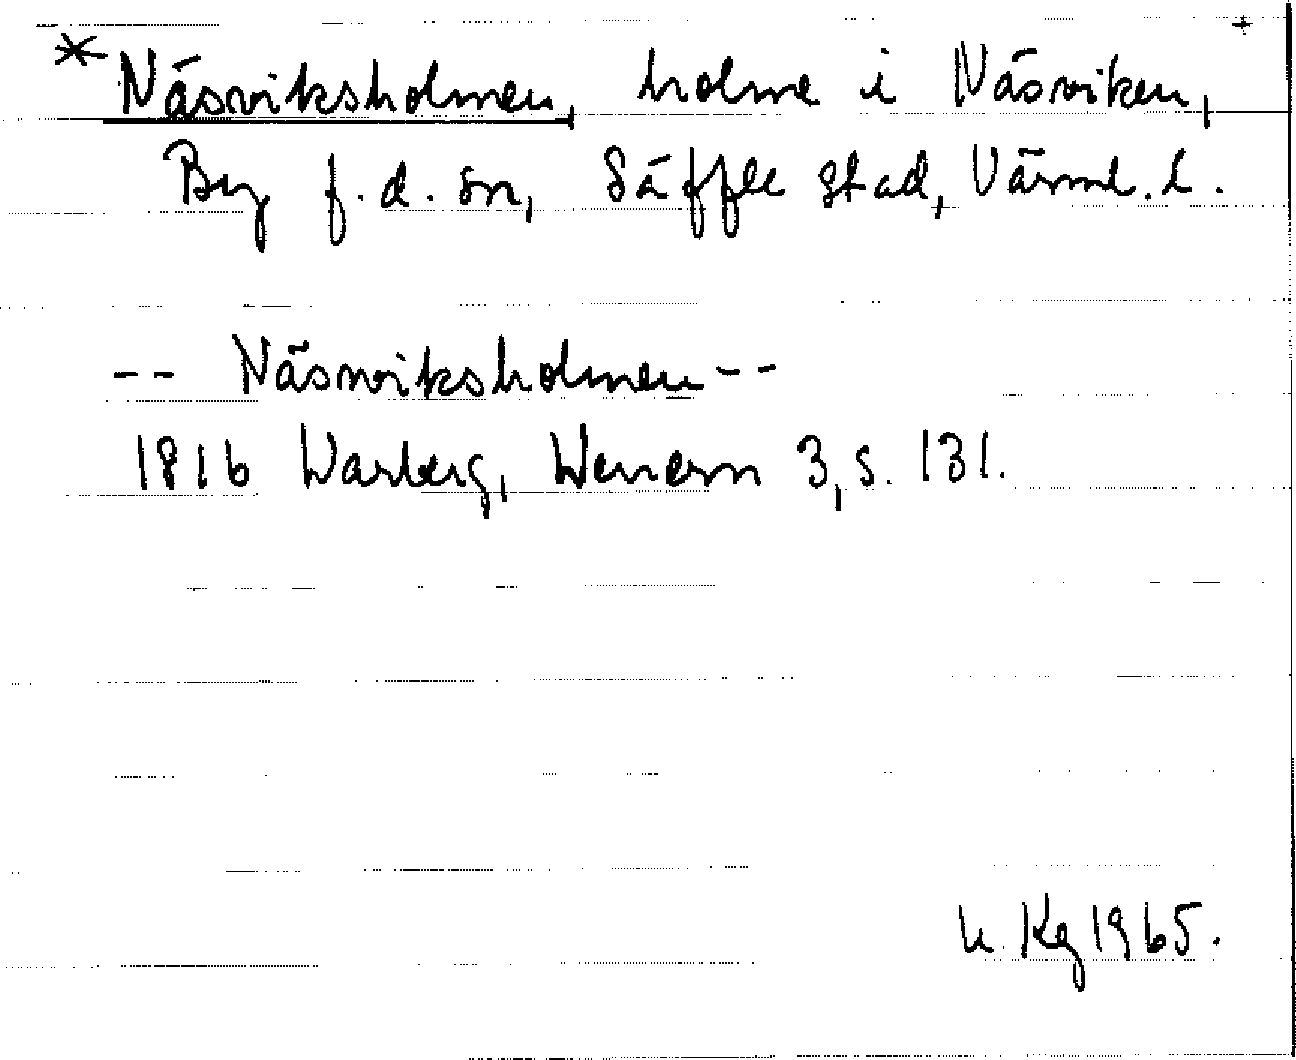 *Näsviksholmen, holme i Näsviken,
By f.d. sn, Säffle stad, Värml. l.
-- Näsviksholmen --
1816 Warberg, Wenern 3, s. 131.
Kg 1965.